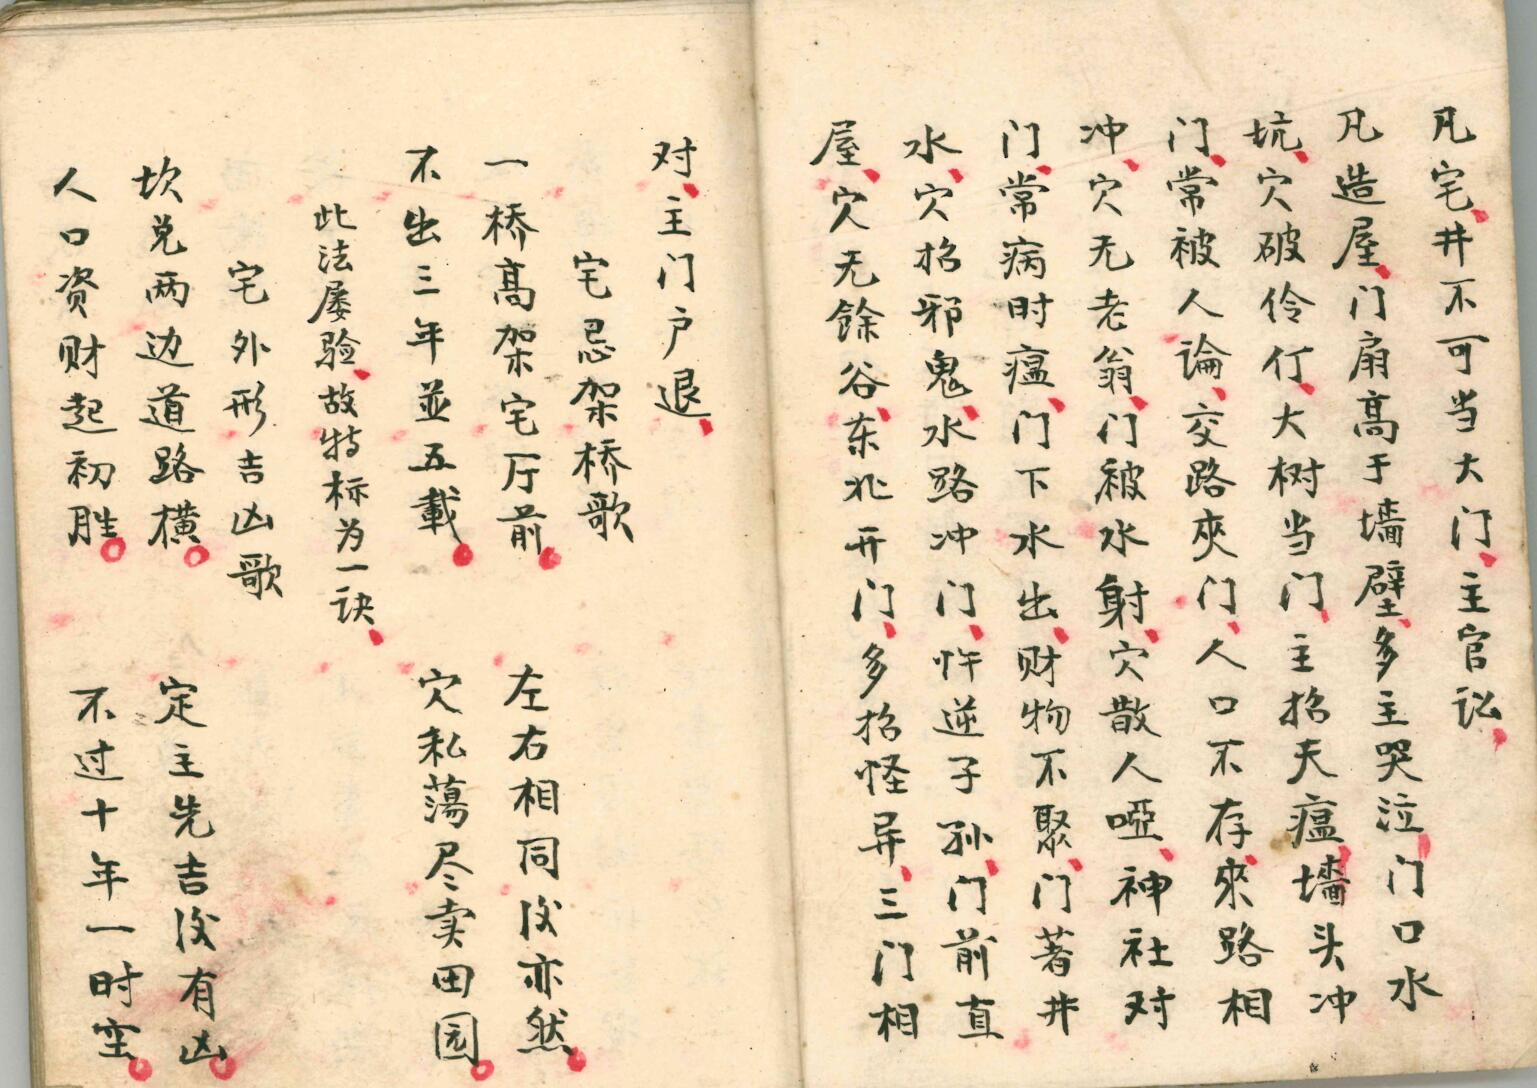 凡宅、井不可当大门、主官讼、
凡造屋、门扇高于墙壁、多主哭泣、门口水
坑、穴破伶仃、大树当门、主招夭瘟、墙头冲
门、常被人论、交路夾门、人口不存、來路相
冲、穴无老翁、门被水射、穴散人哑、神社对
门、常病时瘟、门下水出、财物不聚、门著井
水、穴招邪鬼、水路冲门、忤逆子孙、门前直
屋、穴无餘谷、东北开门、多招怪异、三门相
对、主门户退、
宅忌架桥歌
一桥高架宅厅前 左右相同后亦然
不出三年並五載 穴私蕩尽卖田园
此法屡验、故特标为一诀、
宅外形吉凶歌
坎兑两边道路横。 定主先吉后有凶。
人口资财起初胜。 不过十年一时空。